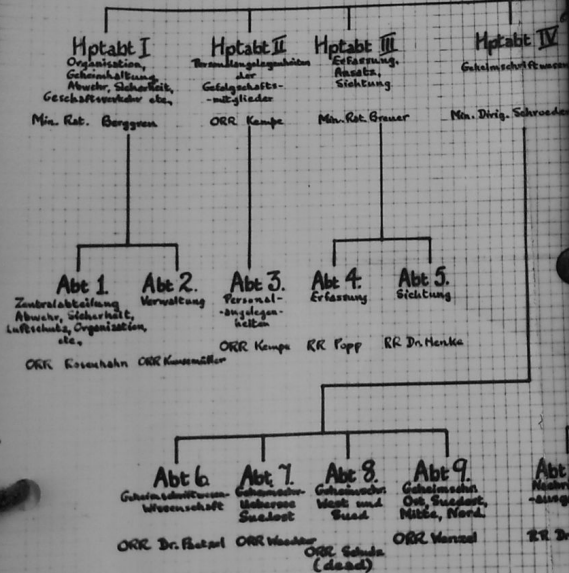 Hptabt I
Organisation,
Geheimhaltung,
Abwehr, Sicherheit,
Geschäftsverkehr etc,
Min. Rat. Berggren
Hptabt II
Personalangelegenheiten
der
Gefolgschafts-
-mitglieder
ORR Kempe
Hptabt III
Erfassung,
Ansatz,
Sichtung
Min. Rat. Breuer
Hptabt IV
Min. Dirig. Schroeder
Abt 1.
Zentralabteilung
Abwehr, Sicherheit,
Luftschutz, Organisation,
etc,
ORR Rosenhahn
Abt 2.
Verwaltung
ORR
Abt 3.
Personal-
-angelegen-
heiten
ORR Kempe
Abt 4.
Erfassung
RR Popp
Abt 5.
Sichtung
RR Dr. Henke
Abt 6.
Wissenschaft
ORR Dr. Paetzel
Abt 7.
Uebersee
Suedost
ORR
Abt 8.
West und
Sued
ORR Schulz
(dead)
Abt 9.
Geheimschr.
Ost, Suedost,
Mitte, Nord.
ORR Wenzel
Abt
RR Dr